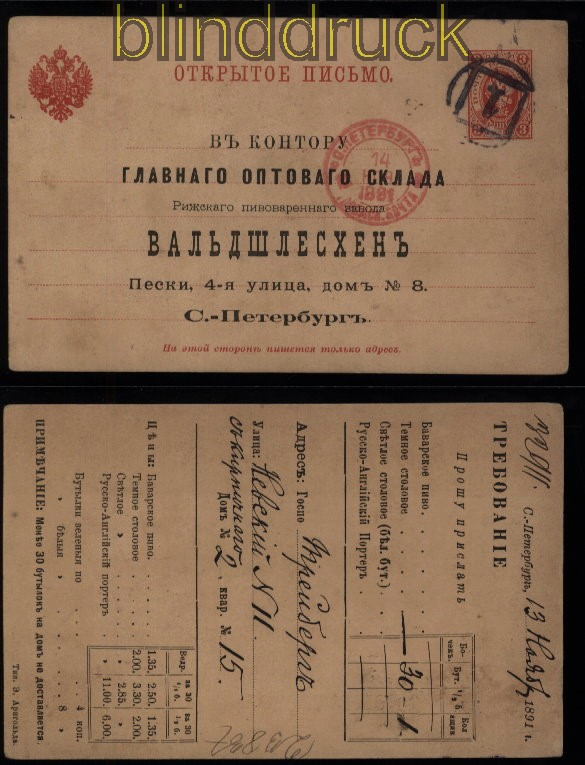 blinddruck
ОТКРЫТОЕ ПИСЬМО.
3 3
ВЪ КОНТОРУ
ГЛАВНАГО ОПТОВАГО СКЛАДА
Рижскаго пивовареннаго завода
ВАЛЬДШЛЕСХЕНЪ
Пески, 4-я улица, домъ № 8.
С.-Петербургъ.
На этой сторонѣ пишется только адресъ.
С.ПЕТЕРБУРГЪ
14
1891
ТРЕБОВАНІЕ
С.-Петербургъ, 13 Ноября 1891 г.
Прошу прислать
Бо-чекъ. Бут. ½ б. Кол ащики
Баварское пиво.
Темное столовое 30 - 1
Свѣтлое столовое (бѣл. бут.)
Русско-Англійскій Портеръ
Адресъ: Госпо Фрейбергъ
Улица: Невскій N 11
съ кирпичнаго Домъ № 2, квар. № 15.
Ведр. за 30 ½ б. за 30 ½ б.
Цѣны: Баварское пиво. 1.35. 2.50. 1.35.
Темное столовое 2.00. 3.30. 2.00.
Свѣтлое » » 2.85. »
Русско-Англійскій портеръ » 11.00. 6.00.
Бутылки зеленыя по 4 коп.
» бѣлыя » 8 »
ПРИМѢЧАНІЕ: Менѣе 30 бутылокъ на домъ не доставляется.
Тип. Э. Арнгольда